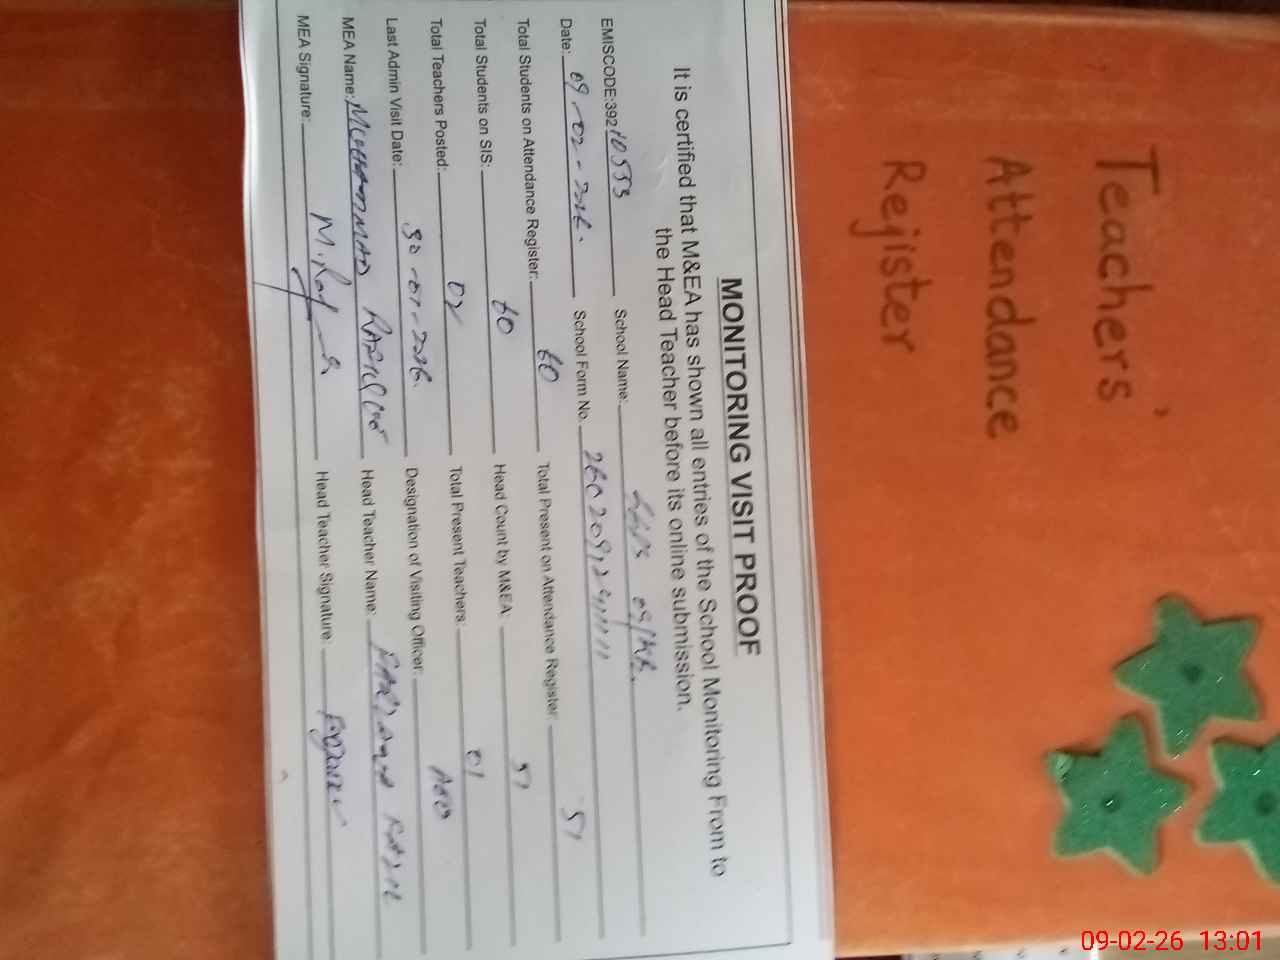 Teachers'
Attendance
Rejister
MONITORING VISIT PROOF
It is certified that M&EA has shown all entries of the School Monitoring From to
the Head Teacher before its online submission.
EMISCODE:39210533 School Name:
Date: 09-02-2026. School Form No.
Total Students on Attendance Register: 60 Total Present on Attendance Register: 51
Total Students on SIS: 60 Head Count by M&EA: 51
Total Teachers Posted: 02 Total Present Teachers: 01
Last Admin Visit Date: 30-01-2026. Designation of Visiting Officer: AEO
MEA Name: MUHAMMAD Head Teacher Name:
MEA Signature: Head Teacher Signature:
09-02-26 13:01